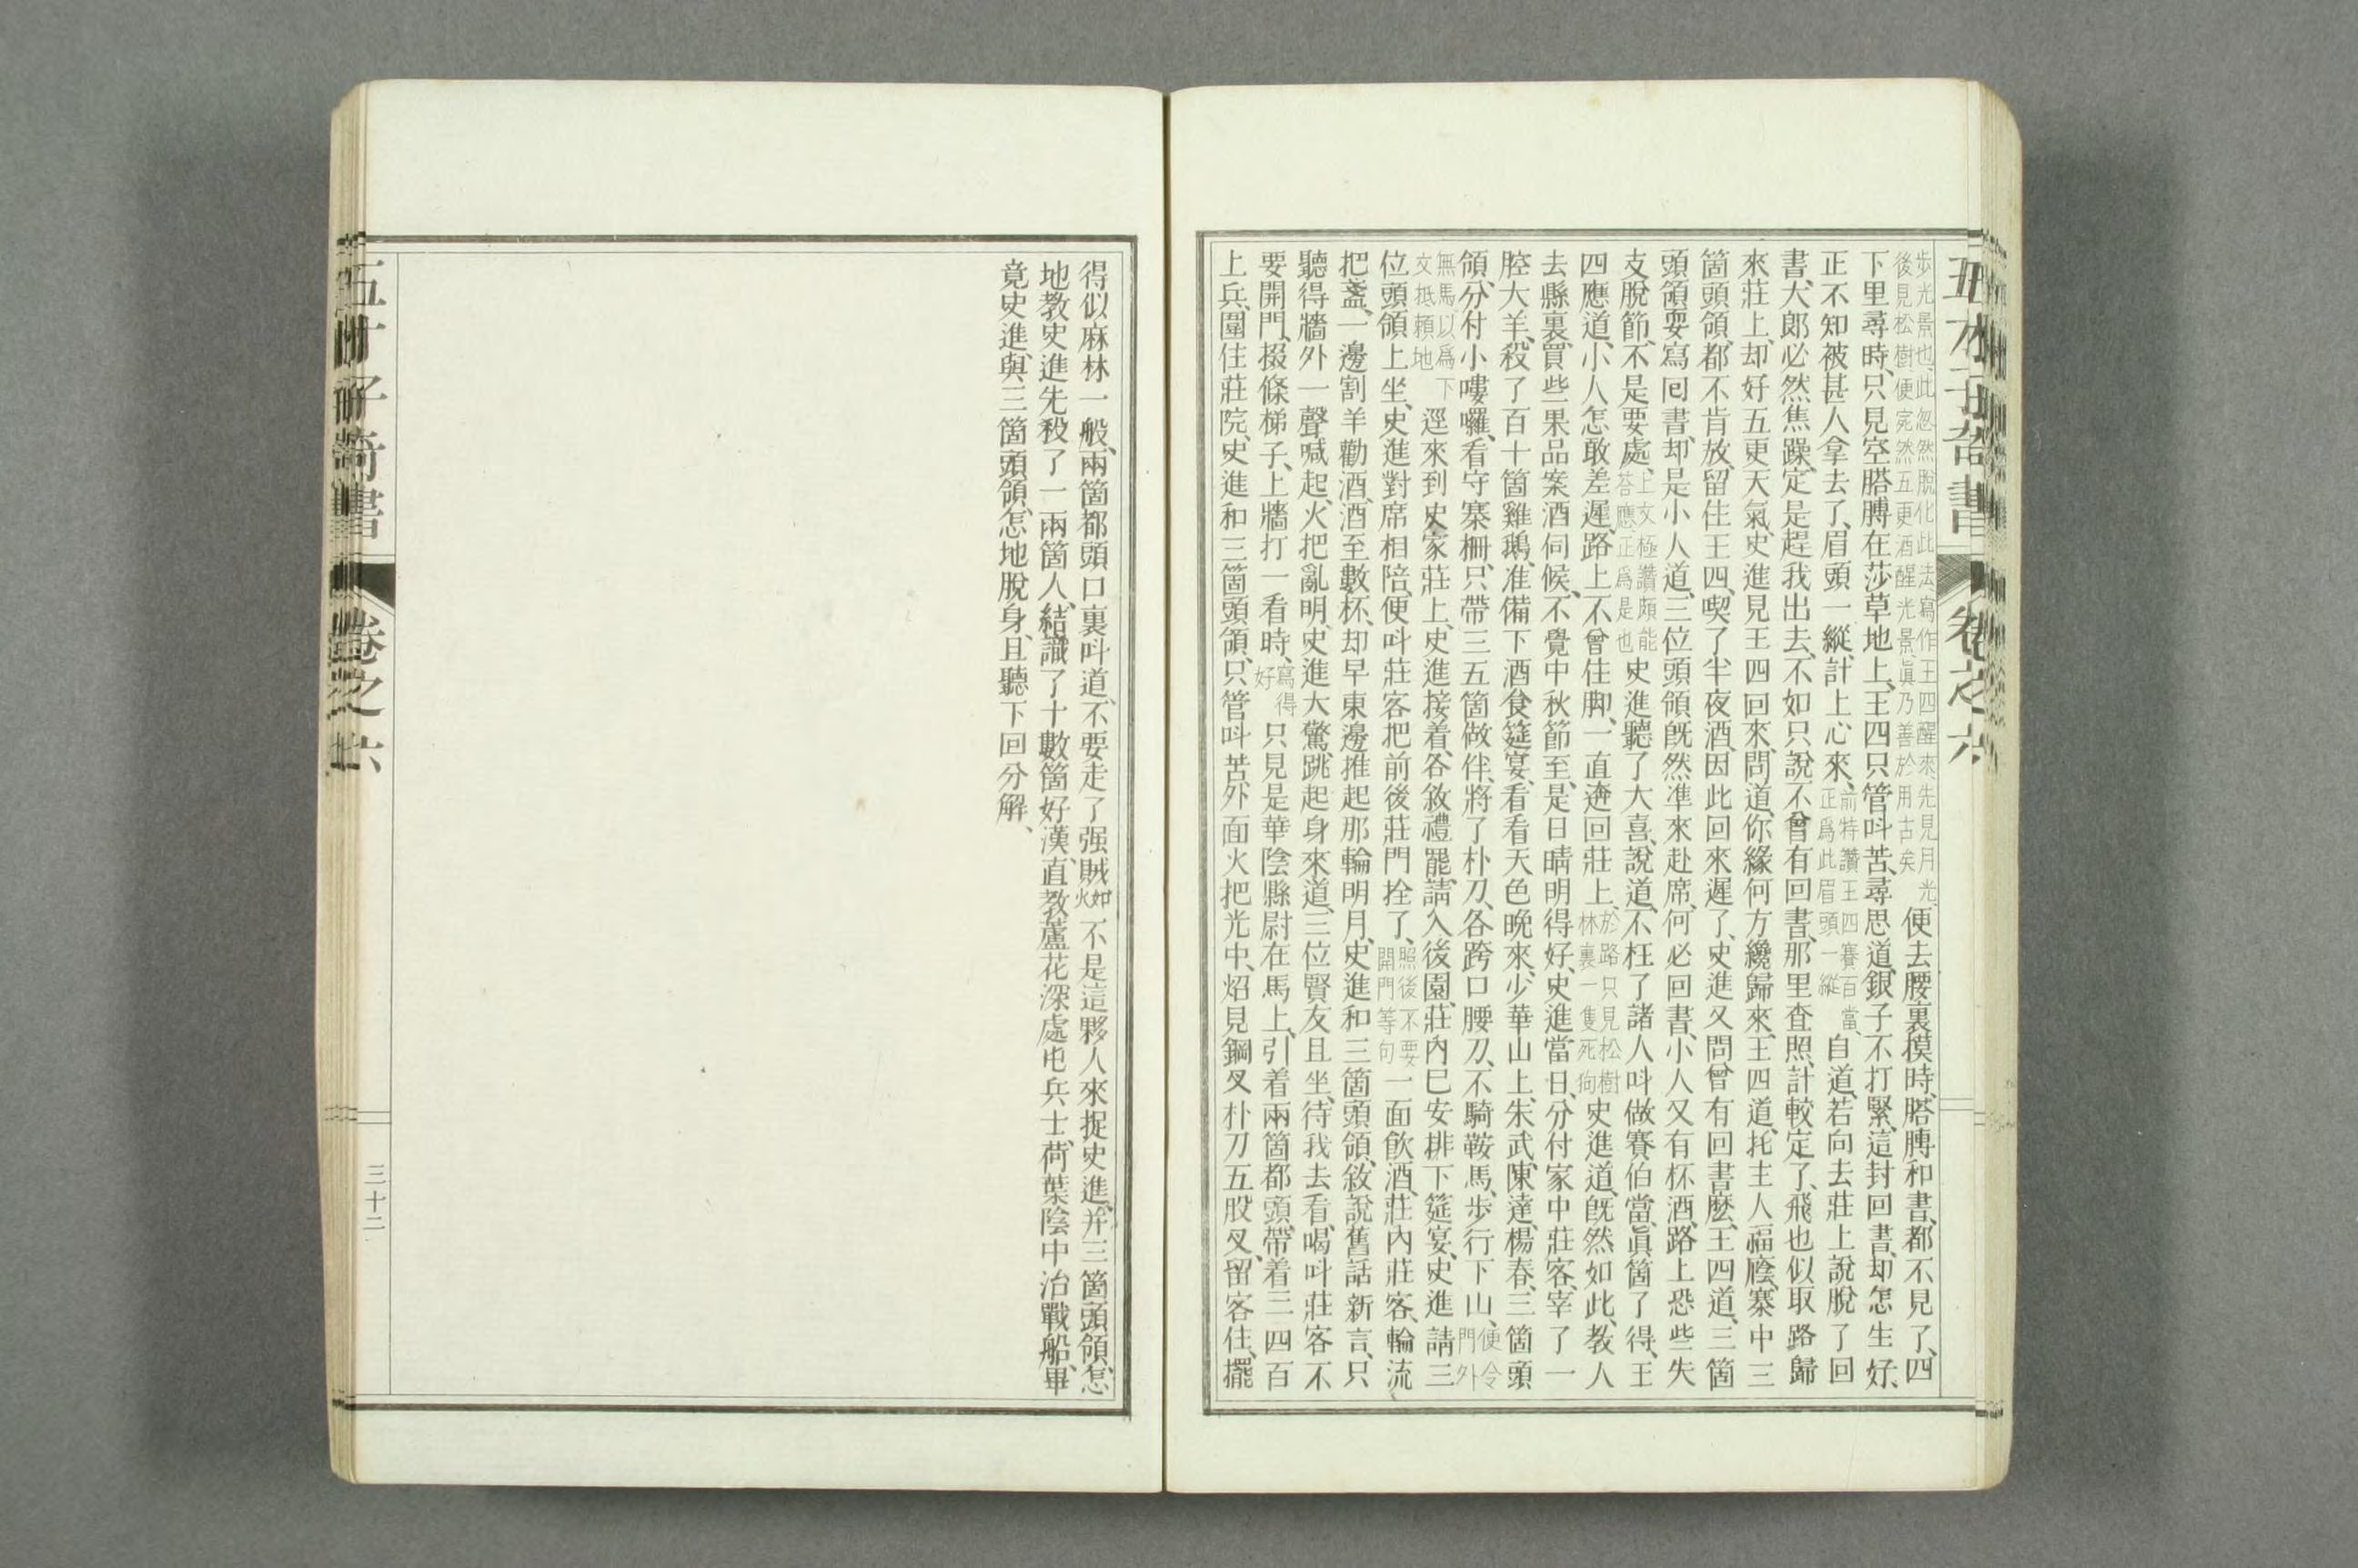 步光景也、此忽然脫化此法寫作王四醒來、先見月光、後見松樹、便宛然五更酒醒光景、眞乃善於用古矣 便去腰裏摸時、搭膊和書、都不見了、四
下里尋時、只見空搭膊在莎草地上、王四只管呌苦、尋思道、銀子不打緊、這封回書、却怎生好、
正不知被甚人拿去了、眉頭一縱、計上心來、前特讚王四賽百當、正爲此眉頭一縱 自道、若向去莊上說脫了回
書、大郎必然焦躁、定是趕我出去、不如只說不曾有回書、那里查照、計較定了、飛也似取路歸
來莊上、却好五更天氣、史進見王四回來、問道、你緣何方纔歸來、王四道、托主人福廕、寨中三
箇頭領、都不肯放、留住王四、喫了半夜酒、因此回來遲了、史進又問、曾有回書麽、王四道、三箇
頭領要寫囘書、却是小人道、三位頭領旣然凖來赴席、何必回書、小人又有杯酒、路上恐些失
支脫節、不是要處、上文極讚頗能答應正爲是也 史進聽了大喜、說道、不枉了諸人呌做賽伯當、眞箇了得、王
四應道、小人怎敢差遲、路上不曾住脚、一直遊回莊上、於路只見松樹林裏一隻死狗 史進道、旣然如此、教人
去縣裏、買些果品案酒伺候、不覺中秋節至、是日晴明得好、史進當日、分付家中莊客、宰了一
腔大羊、殺了百十箇雞鵝、准備下酒食筵宴、看看天色晩來、少華山上、朱武、陳達、楊春、三箇頭
領、分付小嘍囉、看守寨柵、只帶三五箇做伴、將了朴刀、各跨口腰刀、不騎鞍馬、步行下山、便令門外
無馬以爲下文抵賴地 逕來到史家莊上、史進接着、各敘禮罷、請入後園、莊內已安排下筵宴、史進請三
位頭領上坐、史進對席相陪、便呌莊客把前後莊門拴了、照後不要開門等句 一面飮酒、莊內莊客、輪流
把盞、一邊割羊勸酒、酒至數杯、却早東邊推起那輪明月、史進和三箇頭領、敘說舊話新言、只
聽得牆外一聲喊起、火把亂明、史進大驚、跳起身來道、三位賢友且坐、待我去看、喝呌莊客不
要開門、掇條梯子、上牆打一看時、寫得好 只見是華陰縣尉在馬上、引着兩箇都頭、帶着三四百
土兵、圍住莊院、史進和三箇頭領、只管呌苦、外面火把光中、炤見鋼叉朴刀五股叉、留客住、擺
得似麻林一般、兩箇都頭口裏呌道、不要走了强賊、如火 不是這夥人來捉史進、幷三箇頭領、怎
地教史進先殺了一兩箇人、結識了十數箇好漢、直教蘆花深處屯兵士、荷葉陰中治戰船、畢
竟史進、與三箇頭領、怎地脫身、且聽下回分解、
卷之六
三十二